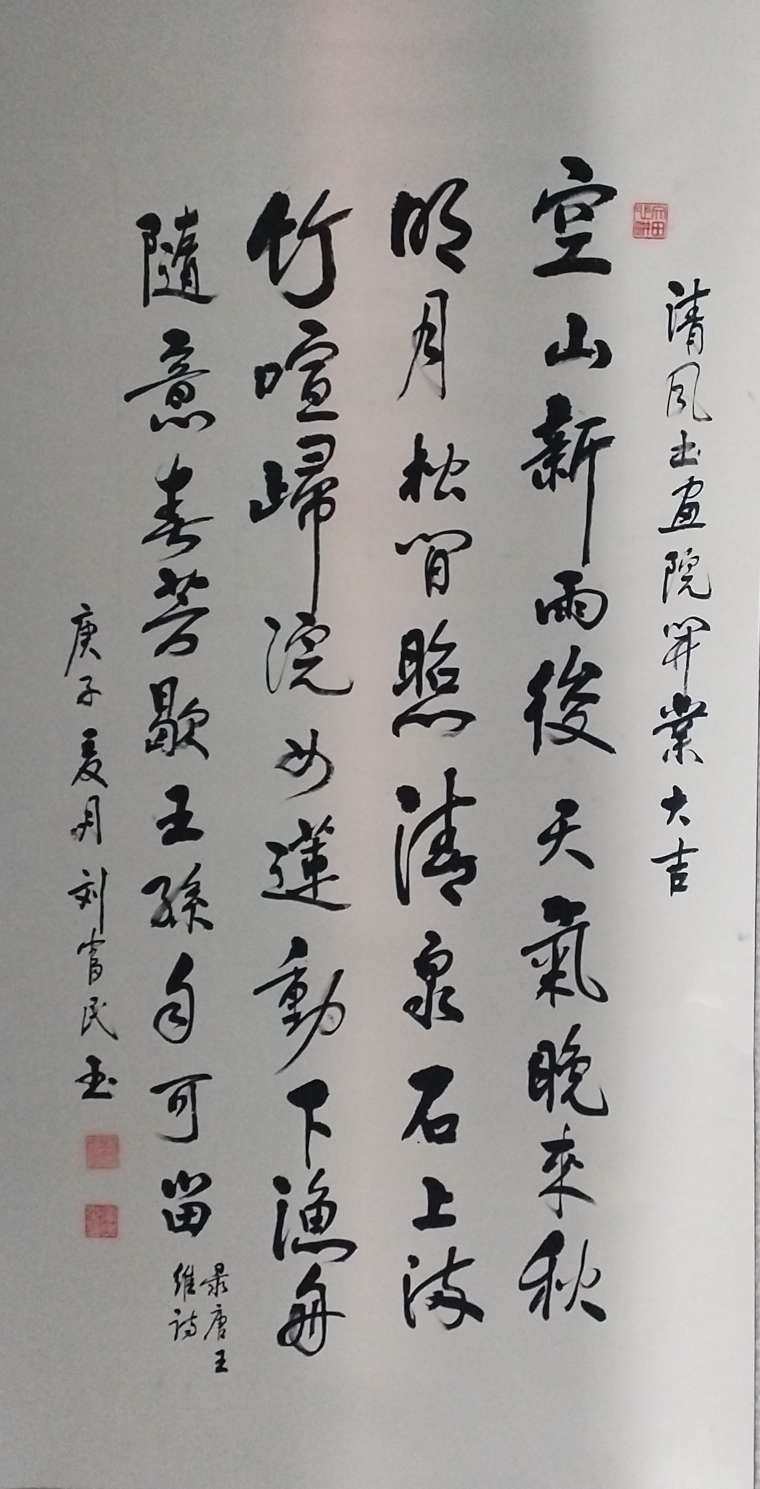 清风书画院開業大吉
空山新雨後天氣晚來秋
明月松間照清泉石上流
竹喧歸浣女蓮動下漁舟
隨意春芳歇王孫自可留
录唐王
维诗
庚子夏月刘富民书